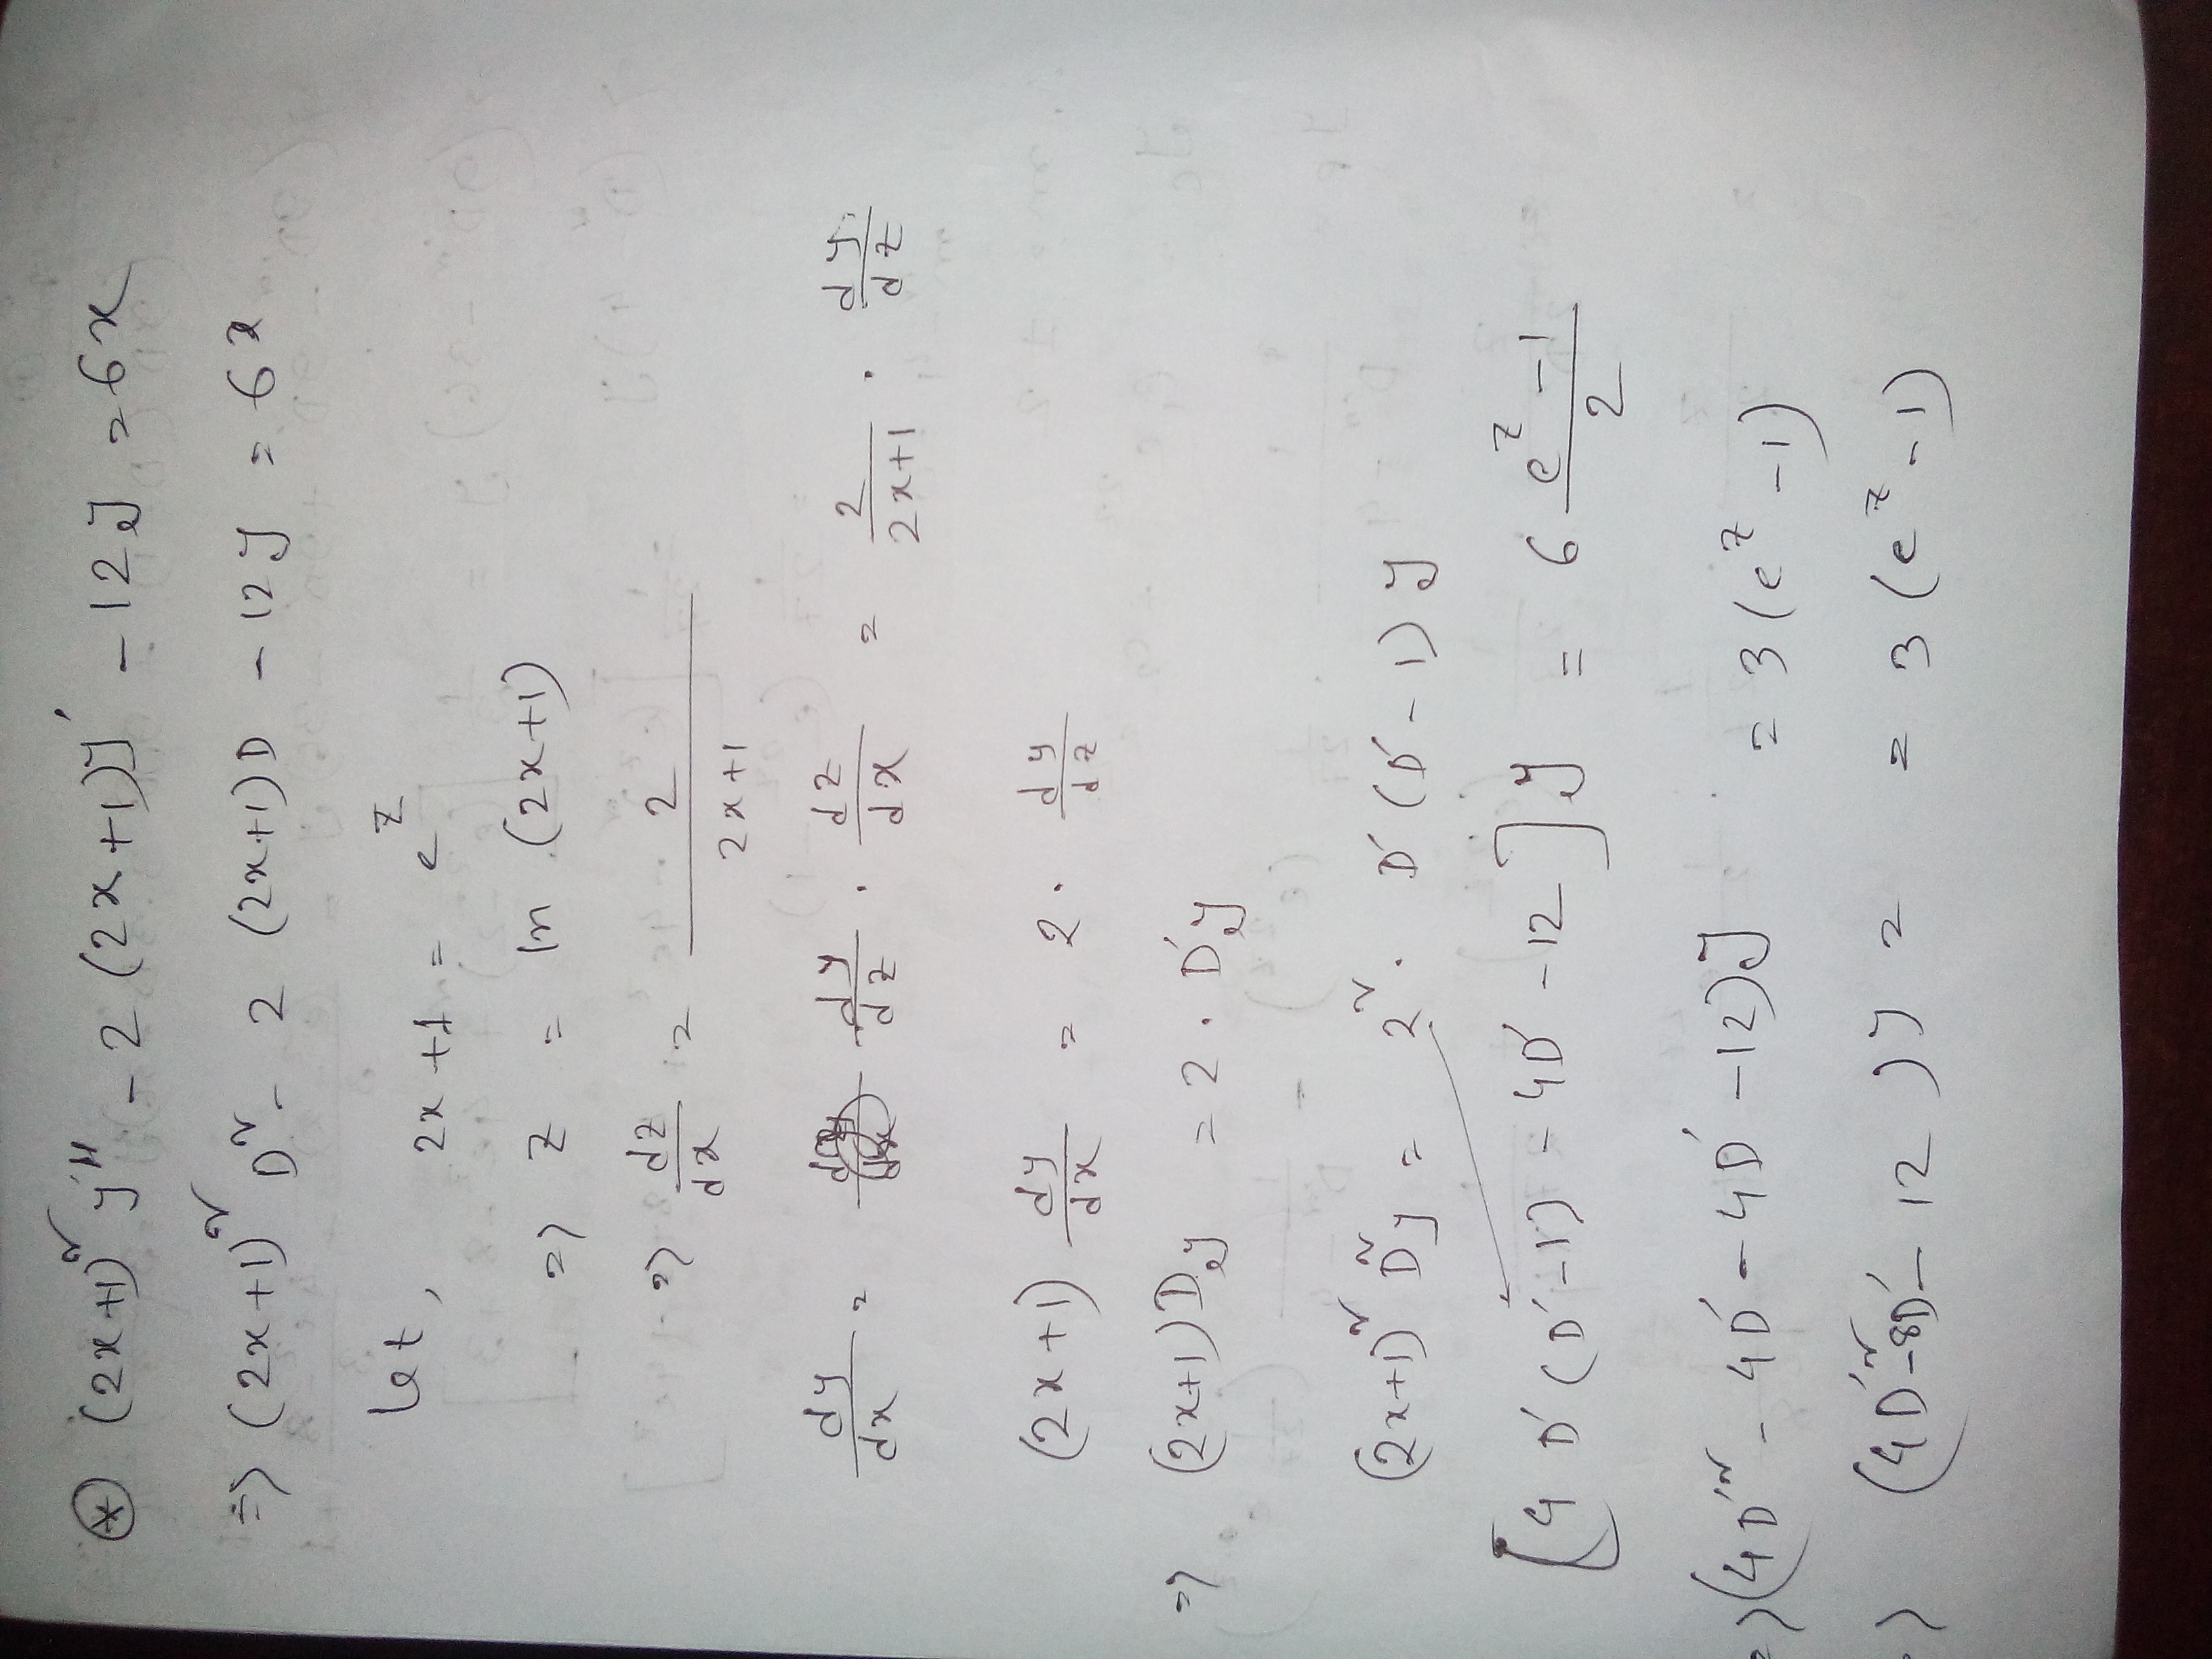 ⊛ (2x+1)² y'' - 2 (2x+1)y' - 12y = 6x
=> (2x+1)² D² - 2 (2x+1)D - 12y = 6x
Let, 2x+1 = e^z
=> z = ln (2x+1)
=> dz/dx = 2/(2x+1)
dy/dx = dy/dz · dz/dx = 2/(2x+1) · dy/dz
(2x+1) dy/dx = 2 · dy/dz
=> (2x+1)Dy = 2 · D'y
(2x+1)² D²y = 2² · D'(D'-1)y
[4D'(D'-1) - 4D' - 12]y = 6 (e^z - 1)/2
=> (4D'² - 4D' - 4D' - 12)y = 3(e^z - 1)
=> (4D'² - 8D' - 12)y = = 3(e^z - 1)